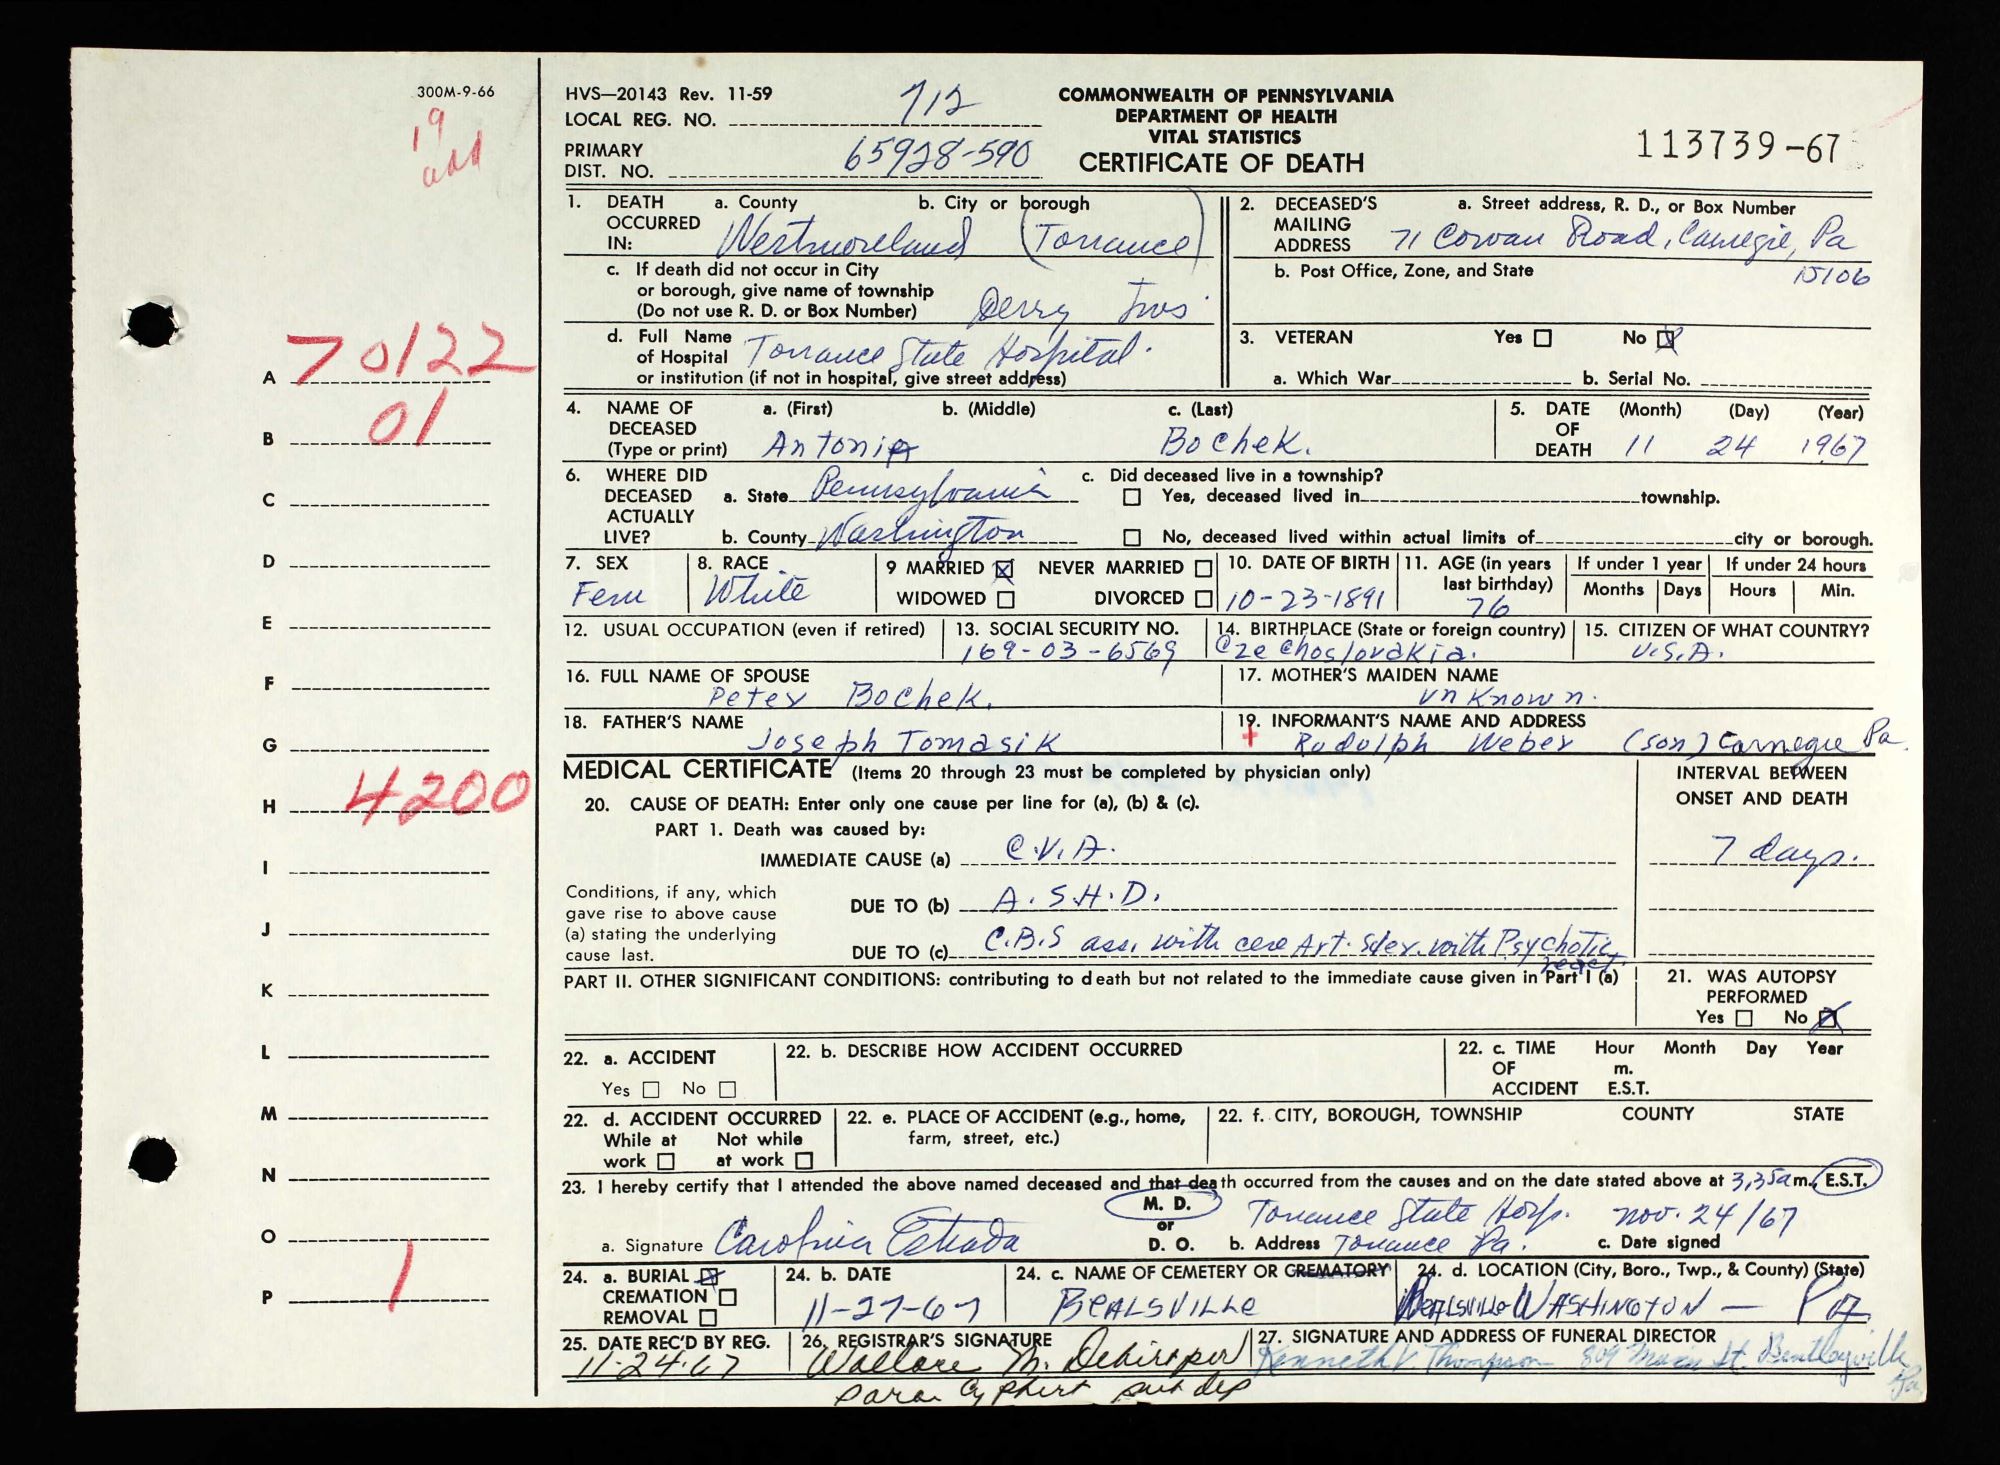 300M-9-66
19
HVS—20143 Rev. 11-59
LOCAL REG. NO. 712
PRIMARY
DIST. NO. 65928-590
COMMONWEALTH OF PENNSYLVANIA
DEPARTMENT OF HEALTH
VITAL STATISTICS
CERTIFICATE OF DEATH
113739-67
1. DEATH OCCURRED IN: a. County Westmoreland b. City or borough (Torrance)
c. If death did not occur in City
or borough, give name of township
(Do not use R. D. or Box Number) Derry Tws
d. Full Name
of Hospital Torrance State Hospital.
or institution (if not in hospital, give street address)
2. DECEASED'S MAILING ADDRESS a. Street address, R. D., or Box Number
71 Cowan Road, Carnegie, Pa
b. Post Office, Zone, and State 15106
3. VETERAN Yes No X
a. Which War b. Serial No.
4. NAME OF DECEASED (Type or print) a. (First) b. (Middle) c. (Last)
Antonia Bochek.
5. DATE OF DEATH (Month) (Day) (Year)
11 24 1967
6. WHERE DID DECEASED ACTUALLY LIVE? a. State Pennsylvania
b. County Washington
c. Did deceased live in a township?
Yes, deceased lived in township.
No, deceased lived within actual limits of city or borough.
7. SEX
Fem
8. RACE
White
9 MARRIED X NEVER MARRIED
WIDOWED DIVORCED
10. DATE OF BIRTH
10-23-1891
11. AGE (in years last birthday)
76
If under 1 year
Months Days
If under 24 hours
Hours Min.
12. USUAL OCCUPATION (even if retired)
13. SOCIAL SECURITY NO.
169-03-6569
14. BIRTHPLACE (State or foreign country)
Czechoslovakia.
15. CITIZEN OF WHAT COUNTRY?
U.S.A.
16. FULL NAME OF SPOUSE
Peter Bochek.
17. MOTHER'S MAIDEN NAME
unknown.
18. FATHER'S NAME
Joseph Tomasik
19. INFORMANT'S NAME AND ADDRESS
Rudolph Weber (son) Carnegie Pa.
MEDICAL CERTIFICATE (Items 20 through 23 must be completed by physician only)
INTERVAL BETWEEN
ONSET AND DEATH
20. CAUSE OF DEATH: Enter only one cause per line for (a), (b) & (c).
PART 1. Death was caused by:
IMMEDIATE CAUSE (a) C.V.A. 7 days.
Conditions, if any, which
gave rise to above cause
(a) stating the underlying
cause last.
DUE TO (b) A.S.H.D.
DUE TO (c) C.B.S ass. with cere Art. Scler. with Psychotic
react.
PART II. OTHER SIGNIFICANT CONDITIONS: contributing to death but not related to the immediate cause given in Part I (a)
21. WAS AUTOPSY
PERFORMED
Yes No X
22. a. ACCIDENT
Yes No
22. b. DESCRIBE HOW ACCIDENT OCCURRED
22. c. TIME OF ACCIDENT Hour Month Day Year
m.
E.S.T.
22. d. ACCIDENT OCCURRED
While at work Not while at work
22. e. PLACE OF ACCIDENT (e.g., home,
farm, street, etc.)
22. f. CITY, BOROUGH, TOWNSHIP COUNTY STATE
23. I hereby certify that I attended the above named deceased and that death occurred from the causes and on the date stated above at 3,35am., E.S.T.
a. Signature Carolina Estrada
M. D.
or
D. O.
b. Address Torrance State Hosp.
Torrance Pa.
c. Date signed nov. 24/67
24. a. BURIAL X
CREMATION
REMOVAL
24. b. DATE
11-27-67
24. c. NAME OF CEMETERY OR CREMATORY
BEALSVILLE
24. d. LOCATION (City, Boro., Twp., & County) (State)
BEALSVILLE WASHINGTON — PA.
25. DATE REC'D BY REG.
11-24-67
26. REGISTRAR'S SIGNATURE
Wallace M.
27. SIGNATURE AND ADDRESS OF FUNERAL DIRECTOR
Kenneth Thompson 809 Main St. Bentleyville
Pa
A 70122
B 01
C
D
E
F
G
H 4200
I
J
K
L
M
N
O
P 1